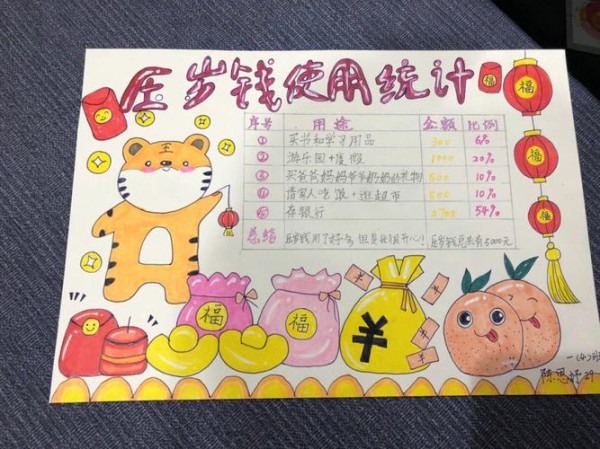 压岁钱使用统计
福
福
福
王
序号 用途 金额 比例
① 买书和学习用品 300 6%
② 游乐园+度假 1000 20%
③ 买爸爸妈妈爷爷奶奶的礼物 500 10%
④ 请家人吃饭+逛超市 500 10%
⑤ 存银行 2700 54%
总结 压岁钱用了好多 但是我很开心! 压岁钱总共有5000元
福
福
¥
一(4)班
陈思 29